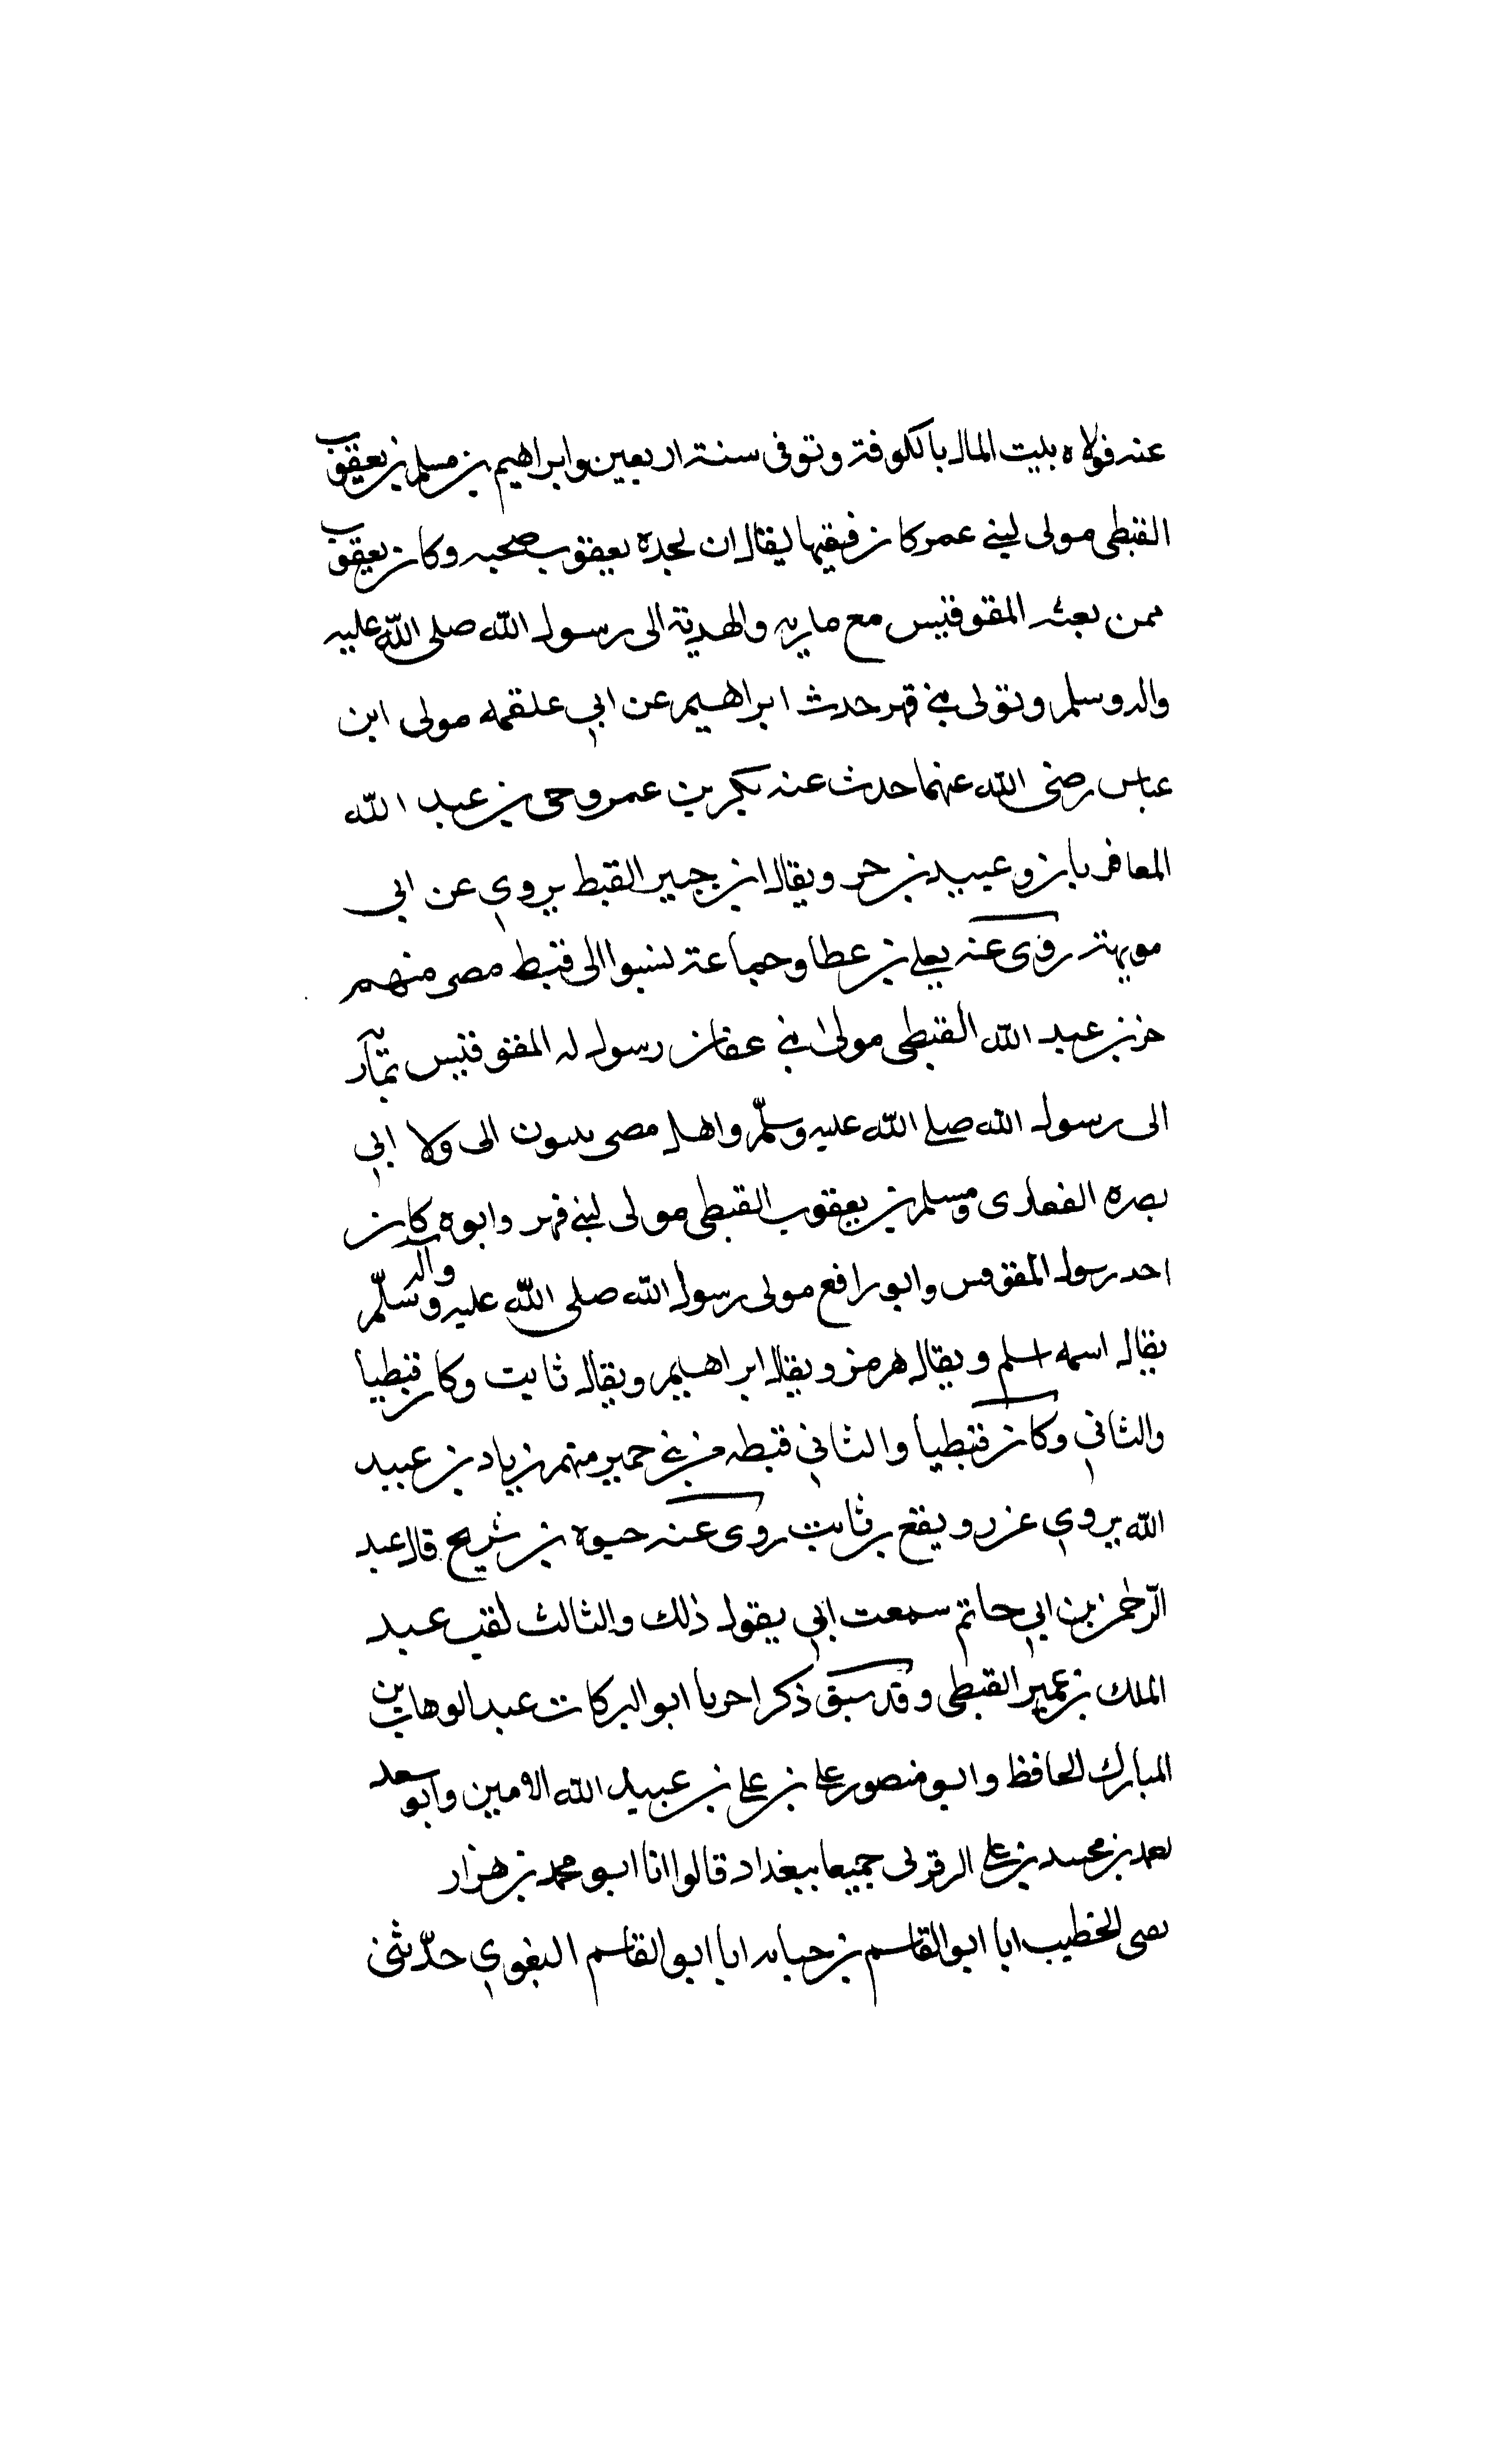 عنه فولاه بيت المال بالكوفة وتوفى سنة اربعين وابراهيم بن مسلم بن يعقوب
القبطى مولى لبنى عمر كان فقيها يقال ان لجده يعقوب صحبه وكان يعقوب
ممن بعثه المقوقيس مع ماريه والهدية الى رسول الله صلى الله عليه
واله وسلم وتولى بنى فهر حدث ابراهيم عن ابي علقمه مولى ابن
عباس رضى الله عنهما حدث عنه بكر بن عمرو حى بن عبد الله
المعافر بان وعبيد بن حر ويقال ابن جبير القبط يروي عن ابى
مويهبة روى عنه يعلى بن عطا وجماعة نسبوا الى قبط مصر منهم
بن عبد الله القبطى مولى بنى عفان رسول له المقوقيس بماريه
الى رسول الله صلى الله عليه وسلّم واهل مصر الى ولا ابي
بصره الغفارى ومسلم بن يعقوب القبطى مولى لبنى فهر وابوه كان
احد رسول المقوقس وابو رافع مولى رسول الله صلى الله عليه واله وسلّم
يقال اسمه اسلم ويقال هرمز ويقال ابراهيم ويقال ثابت وكان قبطيا
والثاني وكان قبطيا والثاني قبطه من بنى حمير منهم زياد بن عبيد
الله يروي عن رويفع بن ثابت روى عنه حيوه بن شريح قال عبد
الرّحمن بن ابي حاتم سمعت ابي يقول ذلك والثالث لقب عبد
الملك بن عمير القبطى وقد سبق ذكر احريا ابو البركات عبد الوهاب بن
المبارك الحافظ وابو منصور على بن على بن عبيد الله الامين وابو سعد
بن محمد بن على جميعا ببغداد قالوا انا ابو محمد بن هزار
الخطيب ابا ابو القاسم بن حبابه ابا ابو القاسم البغوي حدّثنى